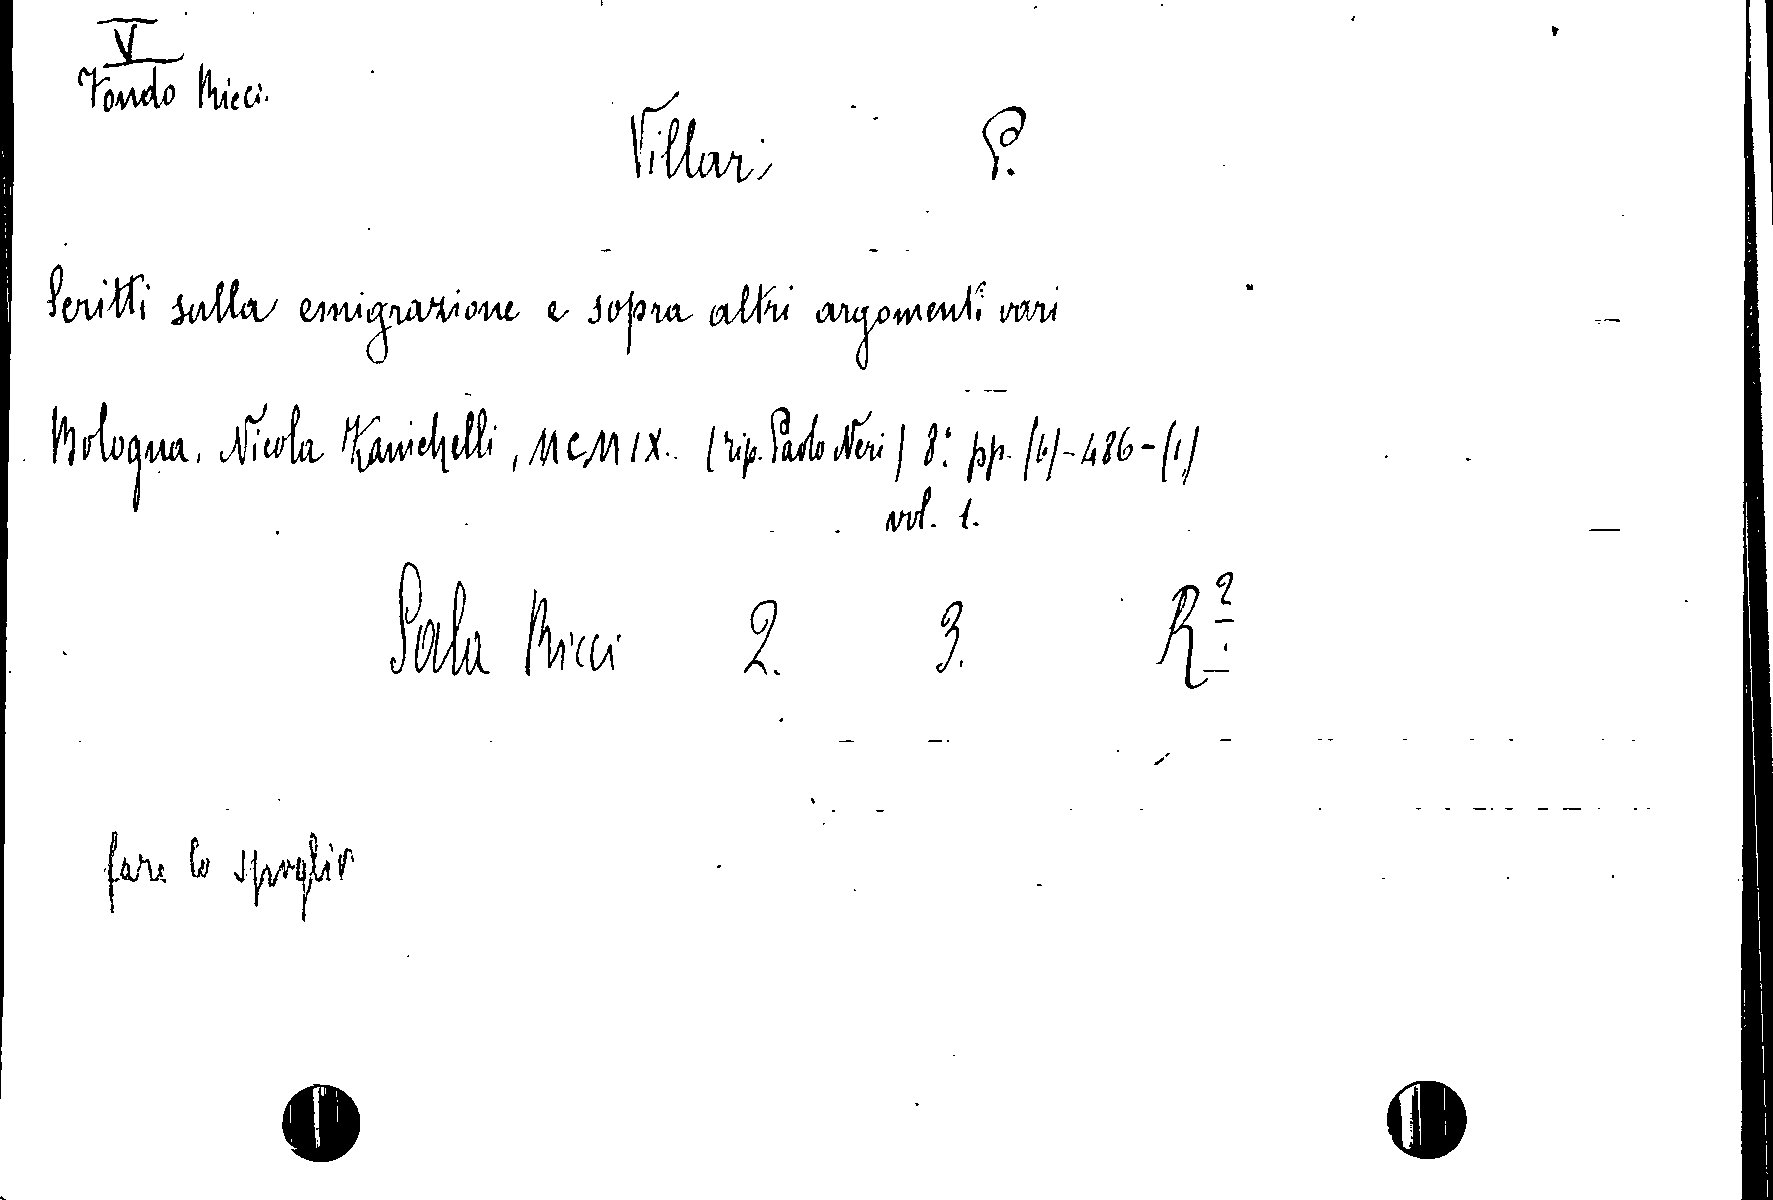 V
Fondo Ricci.
Villari P.
Scritti sulla emigrazione e sopra altri argomenti vari
Bologna, Nicola Zanichelli, MCMIX. (tip. Paolo Neri) 8.° pp. (6)-486-(1)
vol. 1.
Sala Ricci 2. 3. R 2
fare lo spoglio